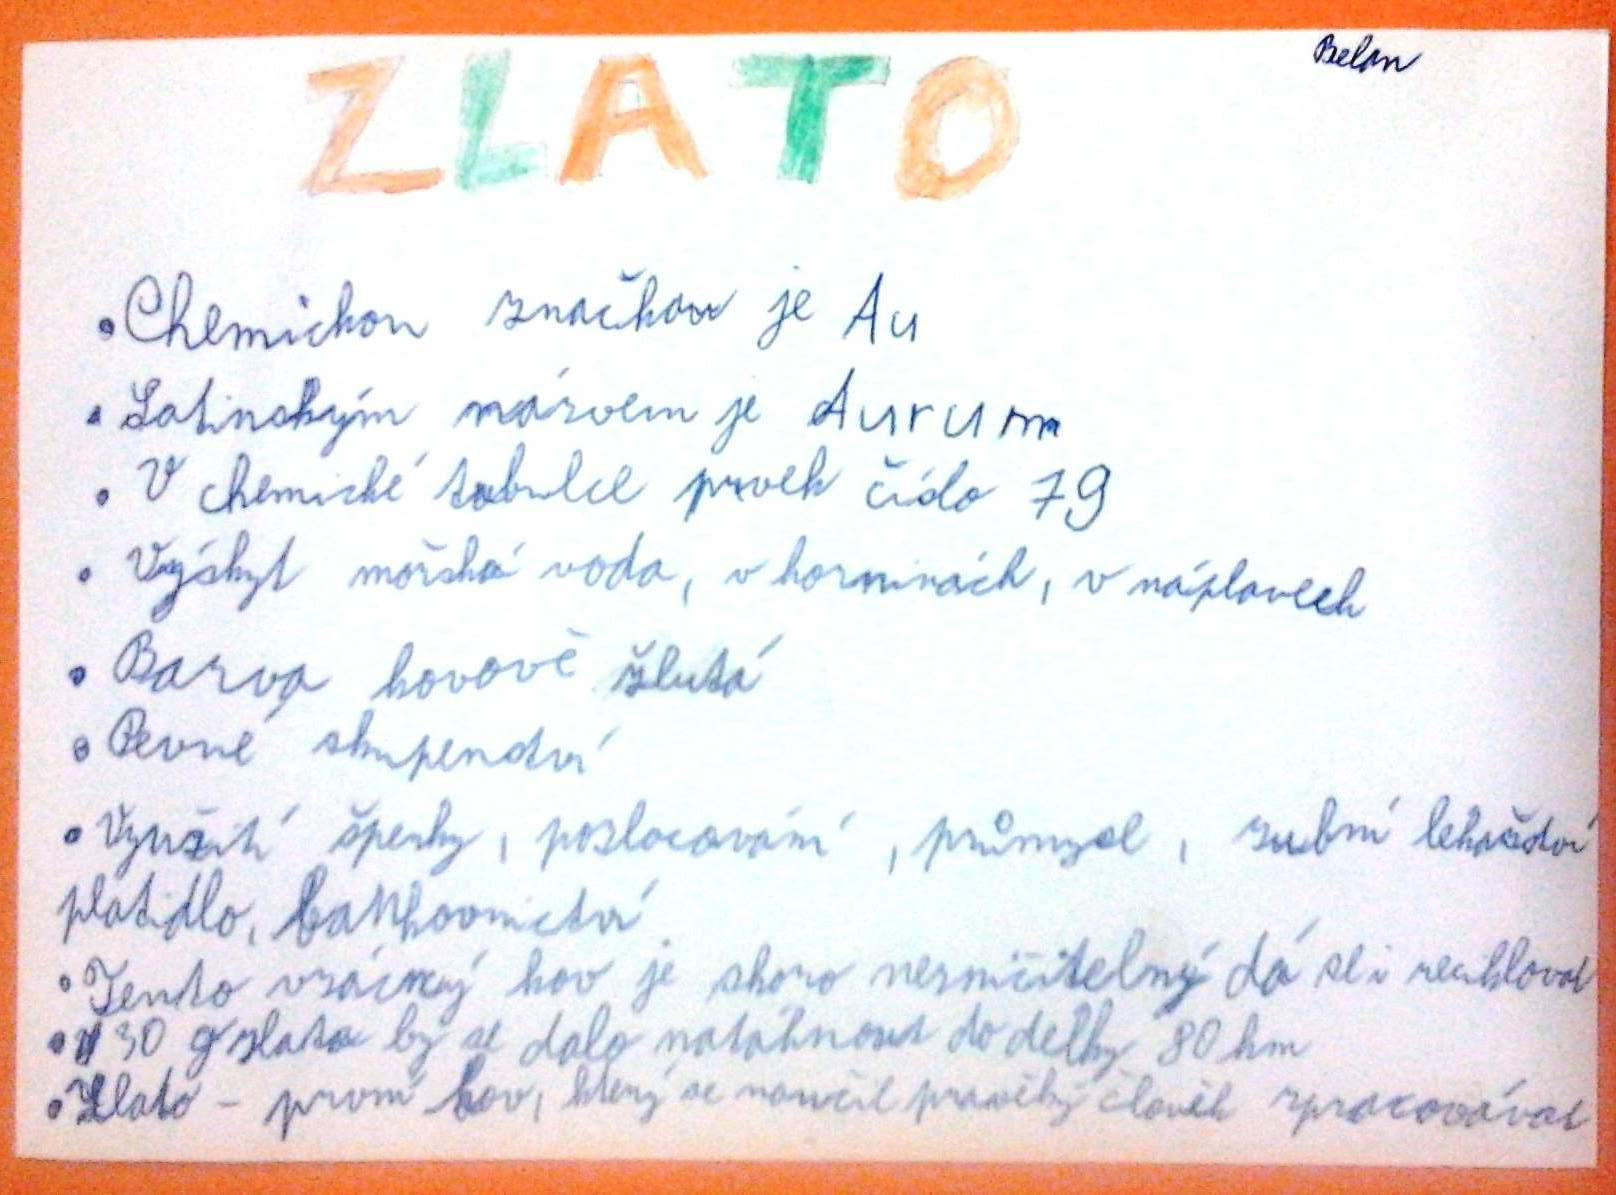 Belan
ZLATO
• Chemickou značkou je Au
• Latinským názvem je Aurum
• V chemické tabulce prvek číslo 79
• Výskyt mořská voda, v horninách, v náplavech
• Barva kovově žlutá
• Pevné skupenství
• Využití šperky, pozlacování, průmysl, zubní lékařství
platidlo, bankovnictví
• Tento vzácný kov je skoro nezničitelný dá se i reciklovat
• 30 g zlata by se dalo natáhnout do délky 80 km
• Zlato - první kov, který se naučil pravěký člověk zpracovávat